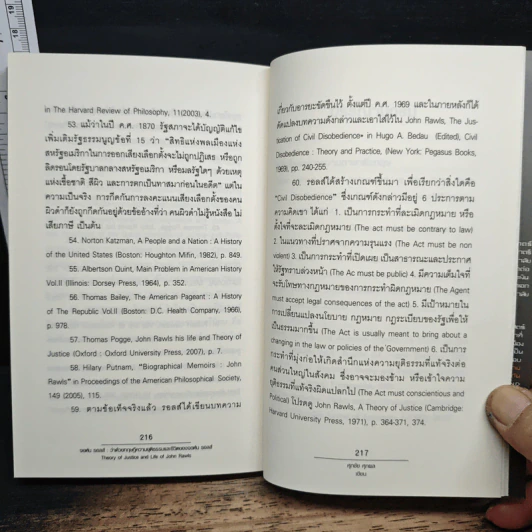 in The Harvard Review of Philosophy, 11(2003), 4.
53. แม้ว่าในปี ค.ศ. 1870 รัฐสภาจะได้บัญญัติแก้ไข
เพิ่มเติมรัฐธรรมนูญข้อที่ 15 ว่า "สิทธิแห่งพลเมืองแห่ง
สหรัฐอเมริกาในการออกเสียงเลือกตั้งจะไม่ถูกปฏิเสธ หรือถูก
ลิดรอนโดยรัฐบาลกลางสหรัฐอเมริกา หรือมลรัฐใดๆ ด้วยเหตุ
แห่งเชื้อชาติ สีผิว และการตกเป็นทาสมาก่อนในอดีต" แต่ใน
ความเป็นจริง การกีดกันการลงคะแนนเสียงเลือกตั้งของคน
ผิวดำก็ยังถูกกีดกันอยู่ด้วยข้ออ้างที่ว่า คนผิวดำไม่รู้หนังสือ ไม่
เสียภาษี เป็นต้น
54. Norton Katzman, A People and a Nation : A History
of the United States (Boston: Houghton Mifin, 1982), p. 849.
55. Albertson Quint, Main Problem in American History
Vol.II (Illinois: Dorsey Press, 1964), p. 352.
56. Thomas Bailey, The American Pageant : A History
of The Republic Vol.II (Boston: D.C. Health Company, 1966),
p. 978.
57. Thomas Pogge, John Rawls his life and Theory of
Justice (Oxford : Oxford University Press, 2007), p. 7.
58. Hilary Putnam, "Biographical Memoirs : John
Rawls" in Proceedings of the American Philosophical Society,
149 (2005), 115.
59. ตามข้อเท็จจริงแล้ว รอลส์ได้เขียนบทความ
216
จอห์น รอลส์ : ว่าด้วยทฤษฎีความยุติธรรมและชีวิตของจอห์น รอลส์
Theory of Justice and Life of John Rawls
เกี่ยวกับอารยะขัดขืนไว้ ตั้งแต่ปี ค.ศ. 1969 และในภายหลังก็ได้
คัดแปลงบทความดังกล่าวและเอาใส่ไว้ใน John Rawls, The Jus-
tication of Civil Disobedience• in Hugo A. Bedau (Edited), Civil
Disobedience : Theory and Practice, (New York: Pegasus Books,
1969), pp. 240-255.
60. รอลส์ได้สร้างเกณฑ์ขึ้นมา เพื่อเรียกว่าสิ่งใดคือ
"Civil Disobedience" ซึ่งเกณฑ์ดังกล่าวมีอยู่ 6 ประการตาม
ความคิดเขา ได้แก่ 1. เป็นการกระทำที่ละเมิดกฎหมาย หรือ
ตั้งใจที่จะละเมิดกฎหมาย (The act must be contrary to law)
2. ในแนวทางที่ปราศจากความรุนแรง (The Act must be non
violent) 3. เป็นการกระทำที่เปิดเผย เป็นสาธารณะและประกาศ
ให้รัฐทราบล่วงหน้า (The Ac must be public) 4. มีความเต็มใจที่
จะรับโทษทางกฎหมายของการกระทำผิดกฎหมาย (The Agent
must accept legal consequences of the act) 5. มีเป้าหมายใน
การเปลี่ยนแปลงนโยบาย กฎหมาย กฎระเบียบของรัฐเพื่อให้
เป็นธรรมมากขึ้น (The Act is usually meant to bring about a
changing in the law or policies of the Government) 6. เป็นการ
กระทำที่มุ่งก่อให้เกิดสำนึกแห่งความยุติธรรมที่แท้จริงต่อ
คนส่วนใหญ่ในสังคม ซึ่งอาจจะมองข้าม หรือเข้าใจความ
ยุติธรรมที่แท้จริงผิดแปลกไป (The Act must conscientious and
Political) โปรดดู John Rawls, A Theory of Justice (Cambridge:
Harvard University Press, 1971), p. 364-371, 374.
217
ศุภชัย ศุภผล
เขียน